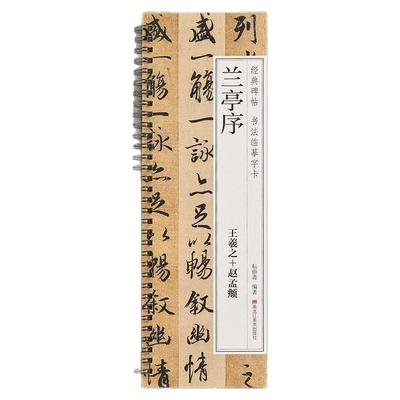 列
之
经典碑帖 书法临摹字卡
兰亭序
王羲之+赵孟𫖯
编著
黑龙江美术出版社
盛一觴一詠亦足以暢叙幽情
盛一觴一詠亦足以暢叙幽情